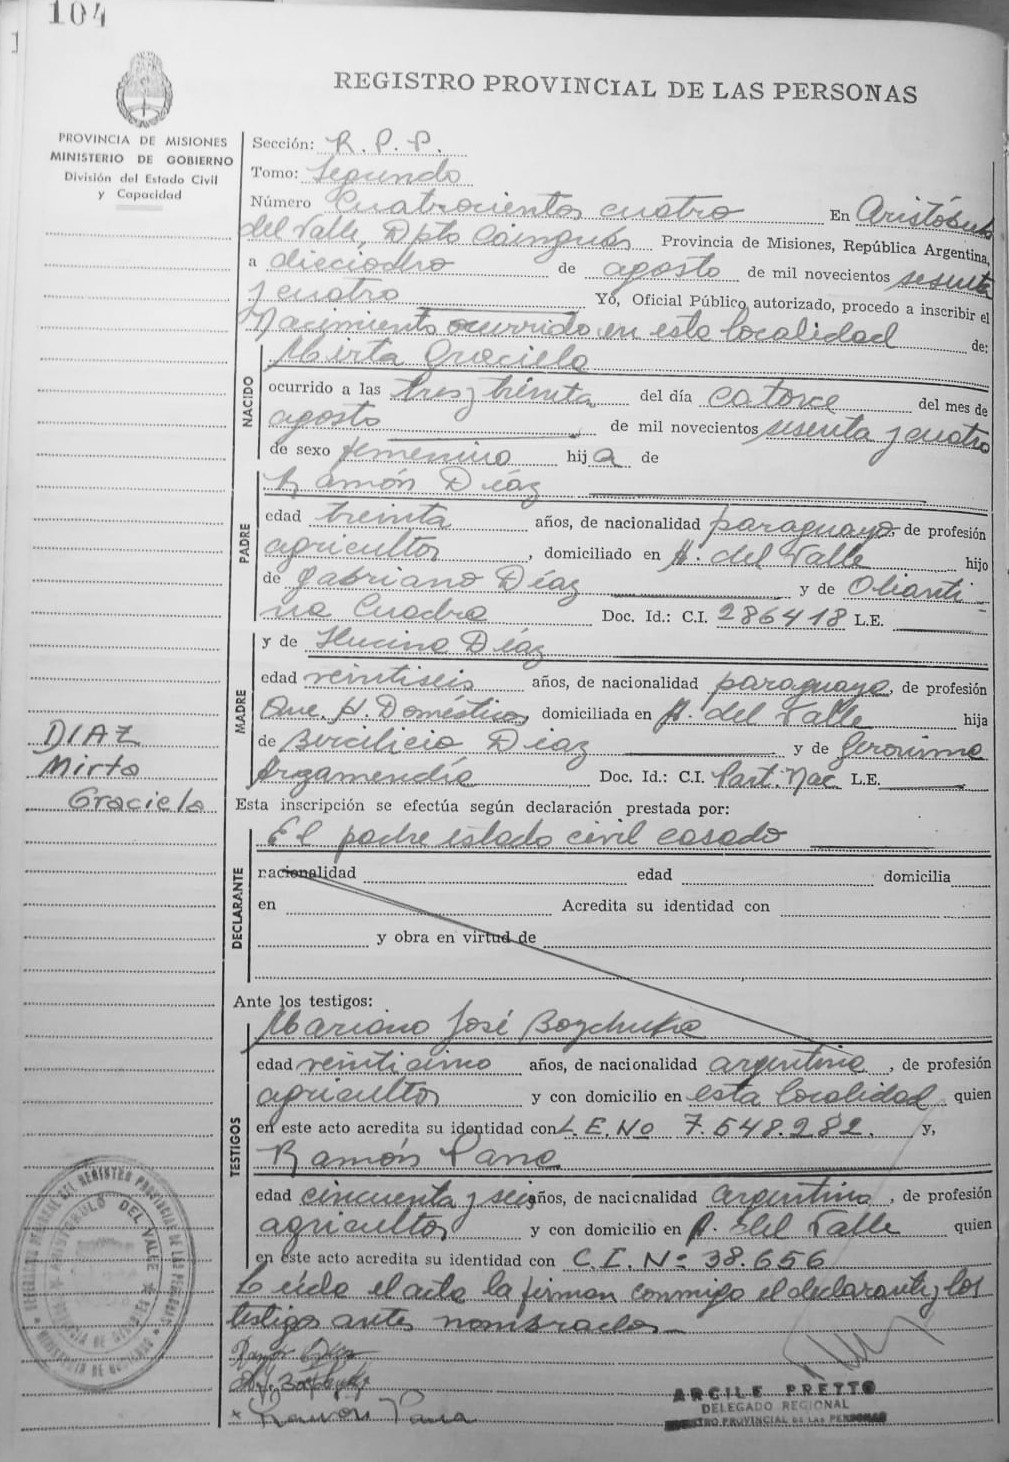 104
REGISTRO PROVINCIAL DE LAS PERSONAS
PROVINCIA DE MISIONES
MINISTERIO DE GOBIERNO
División del Estado Civil
y Capacidad
Sección: R. P. P.
Tomo: Segundo
Número Cuatrocientos cuatro En Aristóbulo
del Valle, Dpto Cainguás Provincia de Misiones, República Argentina,
a dieciocho de agosto de mil novecientos sesenta
y cuatro Yo, Oficial Público autorizado, procedo a inscribir el
Nacimiento ocurrido en esta localidad de:
NACIDO
Mirta Graciela
ocurrido a las tres y treinta del día catorce del mes de
agosto de mil novecientos sesenta y cuatro
de sexo femenino hija de
PADRE
Ramón Díaz
edad treinta años, de nacionalidad paraguayo, de profesión
agricultor, domiciliado en A. del Valle hijo
de Gabriano Díaz y de
Cuadra Doc. Id.: C.I. 286418 L.E.
MADRE
y de Díaz
edad veintiseis años, de nacionalidad paraguaya, de profesión
Que. H. Domésticos, domiciliada en A. del Valle hija
de Díaz y de Geronima
Argamendía Doc. Id.: C.I. Part. Nac L.E.
DIAZ
Mirta
Graciela
Esta inscripción se efectúa según declaración prestada por:
DECLARANTE
El padre estado civil casado
nacionalidad edad domicilia
en Acredita su identidad con
y obra en virtud de
Ante los testigos:
TESTIGOS
Mariano José
edad veinticinco años, de nacionalidad argentina, de profesión
agricultor y con domicilio en esta localidad quien
en este acto acredita su identidad con L.E. No 7.548.282. y,
Ramón
edad cincuenta y seis años, de nacionalidad argentino, de profesión
agricultor y con domicilio en A. del Valle quien
en este acto acredita su identidad con C.I. Nº 38.656
Leída el acta la firman conmigo el declarante y los
testigo antes nombrados
Ramon
ARGILE PRETTO
DELEGADO REGIONAL
REGISTRO PROVINCIAL DE LAS PERSONAS
ARISTOBULO DEL VALLE